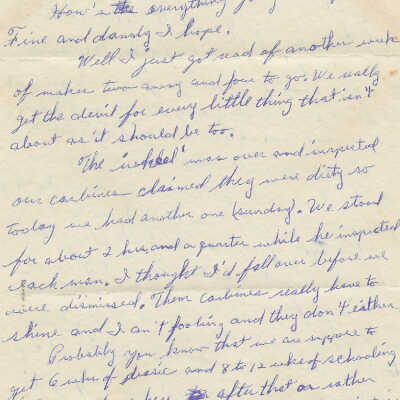 How's the everything
Fine and dandy I hope.
Well I just got read of another week
of makes two away and four to go. We really
get the devil for every little thing that isn't
about as it should be too.
The "wheel" was over and inspected
our carbines claimed they were dirty so
today we had another one (sunday). We stood
for about 2 hrs, and a quarter while he inspected
each man. I thought I'd fall over before we
were dismissed. Them carbines really have to
shine and I an't fooling and they don't either.
Probably you know that we are suppose to
get 6 wks of basic and 8 to 12 wks of schooling
after that or rather